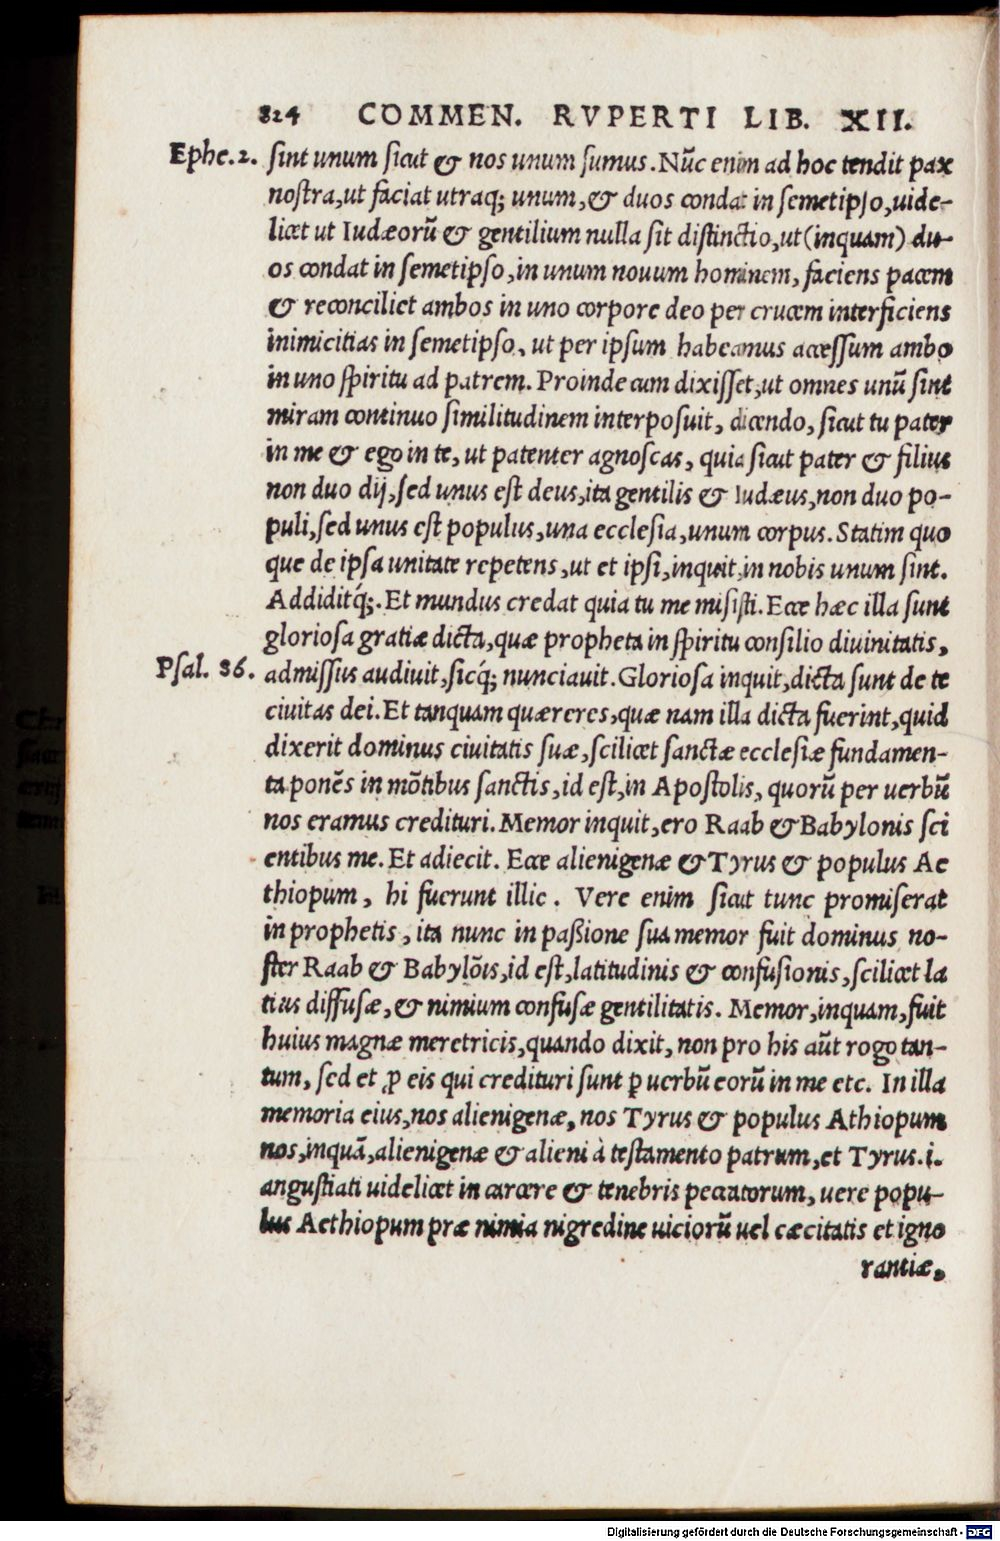 824 COMMEN. RVPERTI LIB. XII.
Ephe.2. sint unum sicut & nos unum sumus. Nūc enim ad hoc tendit pax
nostra, ut faciat utraq; unum, & duos condat in semetipso, uide-
licet ut Iudæorū & gentilium nulla sit distinctio, ut (inquam) du-
os condat in semetipso, in unum nouum hominem, faciens pacem
& reconciliet ambos in uno corpore deo per crucem interficiens
inimicitias in semetipso, ut per ipsum habeamus accessum ambo
in uno spiritu ad patrem. Proinde cum dixisset, ut omnes unū sint
miram continuo similitudinem interposuit, dicendo, sicut tu pater
in me & ego in te, ut patenter agnoscas, quia sicut pater & filius
non duo dij, sed unus est deus, ita gentilis & Iudæus, non duo po-
puli, sed unus est populus, una ecclesia, unum corpus. Statim quo
que de ipsa unitate repetens, ut et ipsi, inquit, in nobis unum sint.
Addiditq́;. Et mundus credat quia tu me misisti. Ecce hæc illa sunt
gloriosa gratiæ dicta, quæ propheta in spiritu consilio diuinitatis,
Psal. 86. admissus audiuit, sicq́; nunciauit. Gloriosa inquit, dicta sunt de te
ciuitas dei. Et tanquam quæreres, quæ nam illa dicta fuerint, quid
dixerit dominus ciuitatis suæ, scilicet sanctæ ecclesiæ fundamen-
ta ponēs in mōtibus sanctis, id est, in Apostolis, quorū per uerbū
nos eramus credituri. Memor inquit, ero Raab & Babylonis sci
entibus me. Et adiecit. Ecce alienigenæ & Tyrus & populus Ae
thiopum, hi fuerunt illic. Vere enim sicut tunc promiserat
in prophetis, ita nunc in paßione sua memor fuit dominus no-
ster Raab & Babylōis, id est, latitudinis & confusionis, scilicet la
tius diffusæ, & nimium confusæ gentilitatis. Memor, inquam, fuit
huius magnæ meretricis, quando dixit, non pro his aūt rogo tan-
tum, sed et ꝓ eis qui credituri sunt ꝑ uerbū eorū in me etc. In illa
memoria eius, nos alienigenæ, nos Tyrus & populus Athiopum
nos, inquā, alienigenæ & alieni à testamento patrum, et Tyrus .i.
angustiati uidelicet in carcere & tenebris peccatorum, uere popu-
lus Aethiopum præ nimia nigredine uiciorū uel cæcitatis et igno
rantiæ,
Digitalisierung gefördert durch die Deutsche Forschungsgemeinschaft - DFG